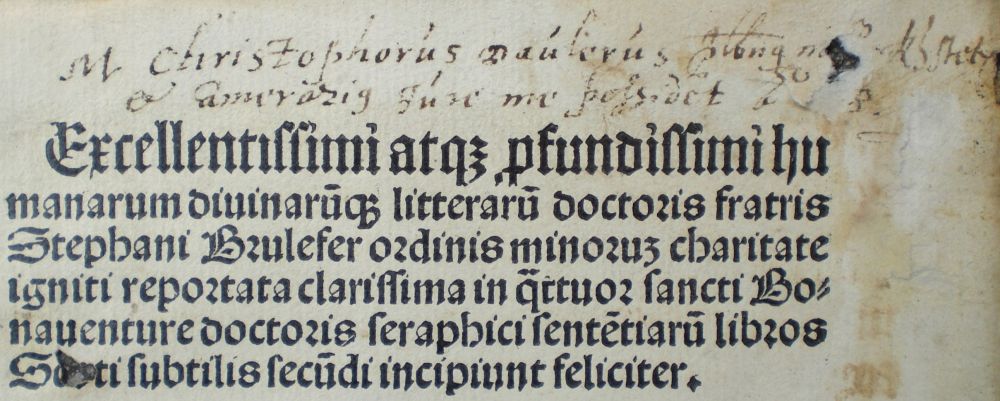 M Christophorus
& Camerarius iure me possidet
Excellentissimi atqȝ ꝓfundissimi hu
manarum diuinarūqꝫ litterarū doctoris fratris
Stephani Brulefer ordinis minoruȝ charitate
igniti reportata clarissima in q̄ttuor sancti Bo⸗
nauenture doctoris seraphici sentētiarū libros
Scoti subtilis secūdi incipiunt feliciter.